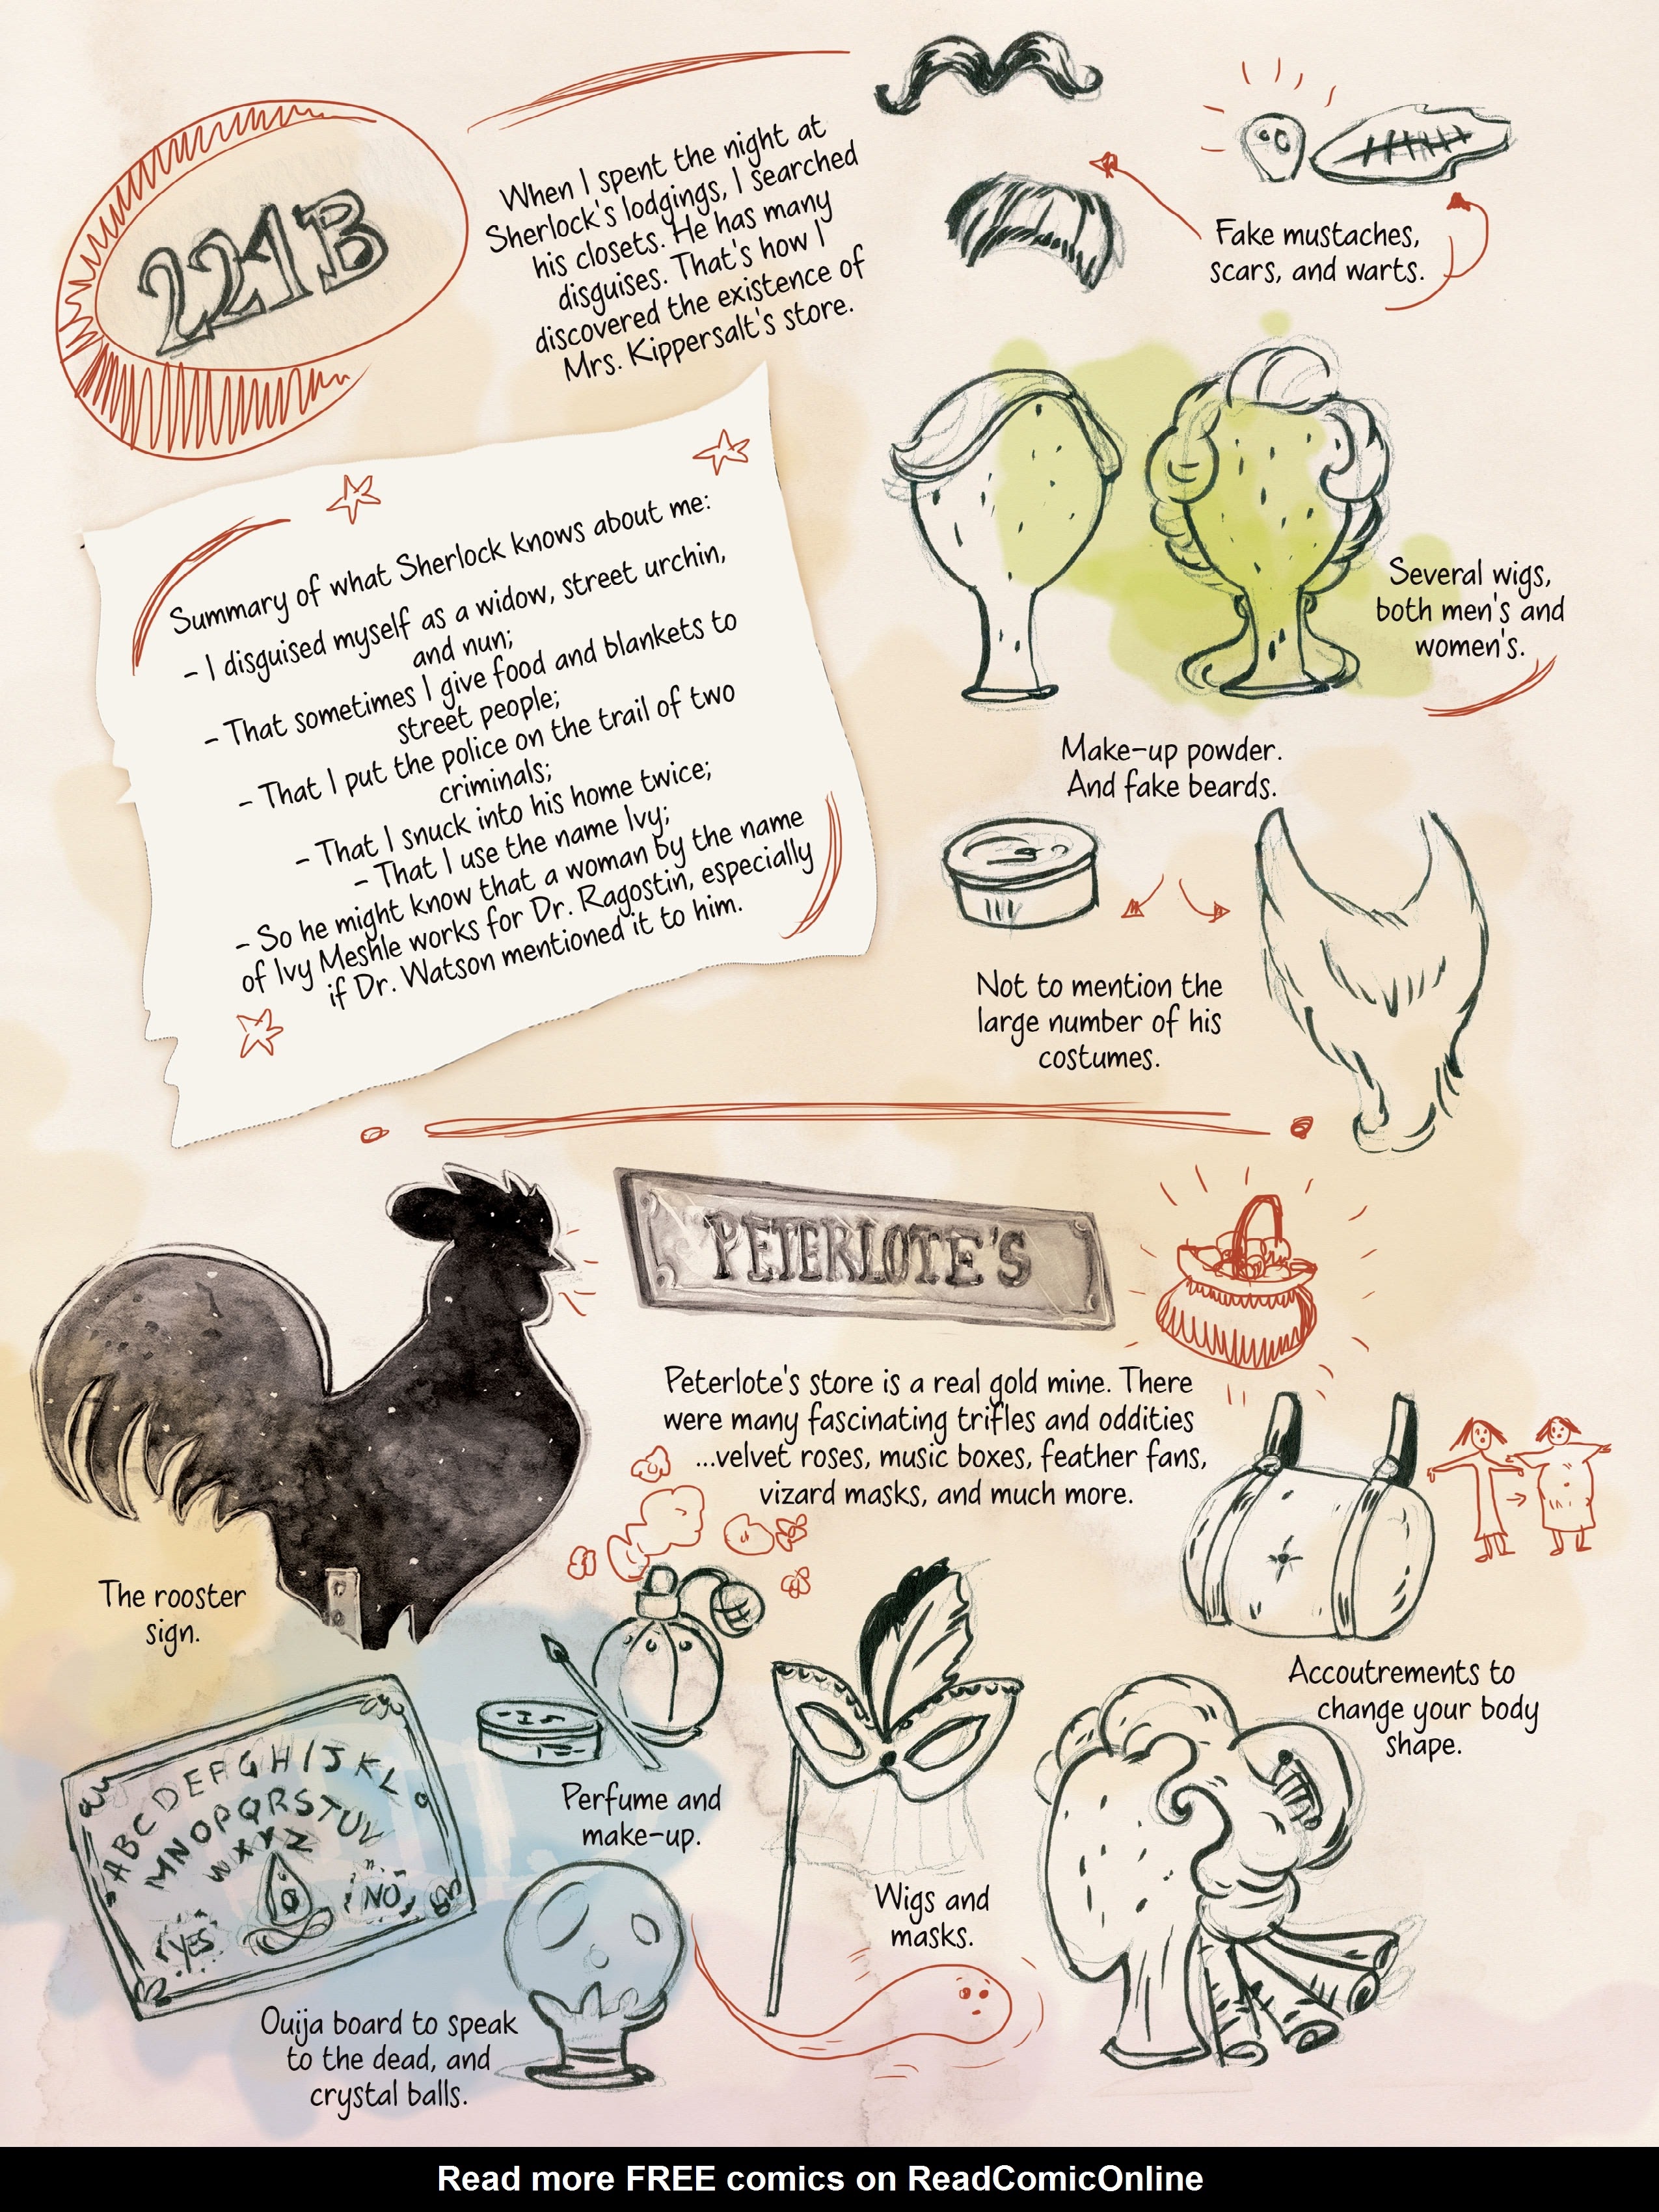 221B
When I spent the night at
Sherlock's lodgings, I searched
his closets. He has many
disguises. That's how I
discovered the existence of
Mrs. Kippersalt's store.
Fake mustaches,
scars, and warts.
Several wigs,
both men's and
women's.
Summary of what Sherlock knows about me:
- I disguised myself as a widow, street urchin,
and nun;
- That sometimes I give food and blankets to
street people;
- That I put the police on the trail of two
criminals;
- That I snuck into his home twice;
- That I use the name Ivy;
- So he might know that a woman by the name
of Ivy Meshle works for Dr. Ragostin, especially
if Dr. Watson mentioned it to him.
Make-up powder.
And fake beards.
Not to mention the
large number of his
costumes.
PETERLOTE'S
Peterlote's store is a real gold mine. There
were many fascinating trifles and oddities
...velvet roses, music boxes, feather fans,
vizard masks, and much more.
The rooster
sign.
Accoutrements to
change your body
shape.
Perfume and
make-up.
Wigs and
masks.
ABCDEFGHIJKL
MNOPQRSTUV
WXYZ
YES
NO
Ouija board to speak
to the dead, and
crystal balls.
Read more FREE comics on ReadComicOnline